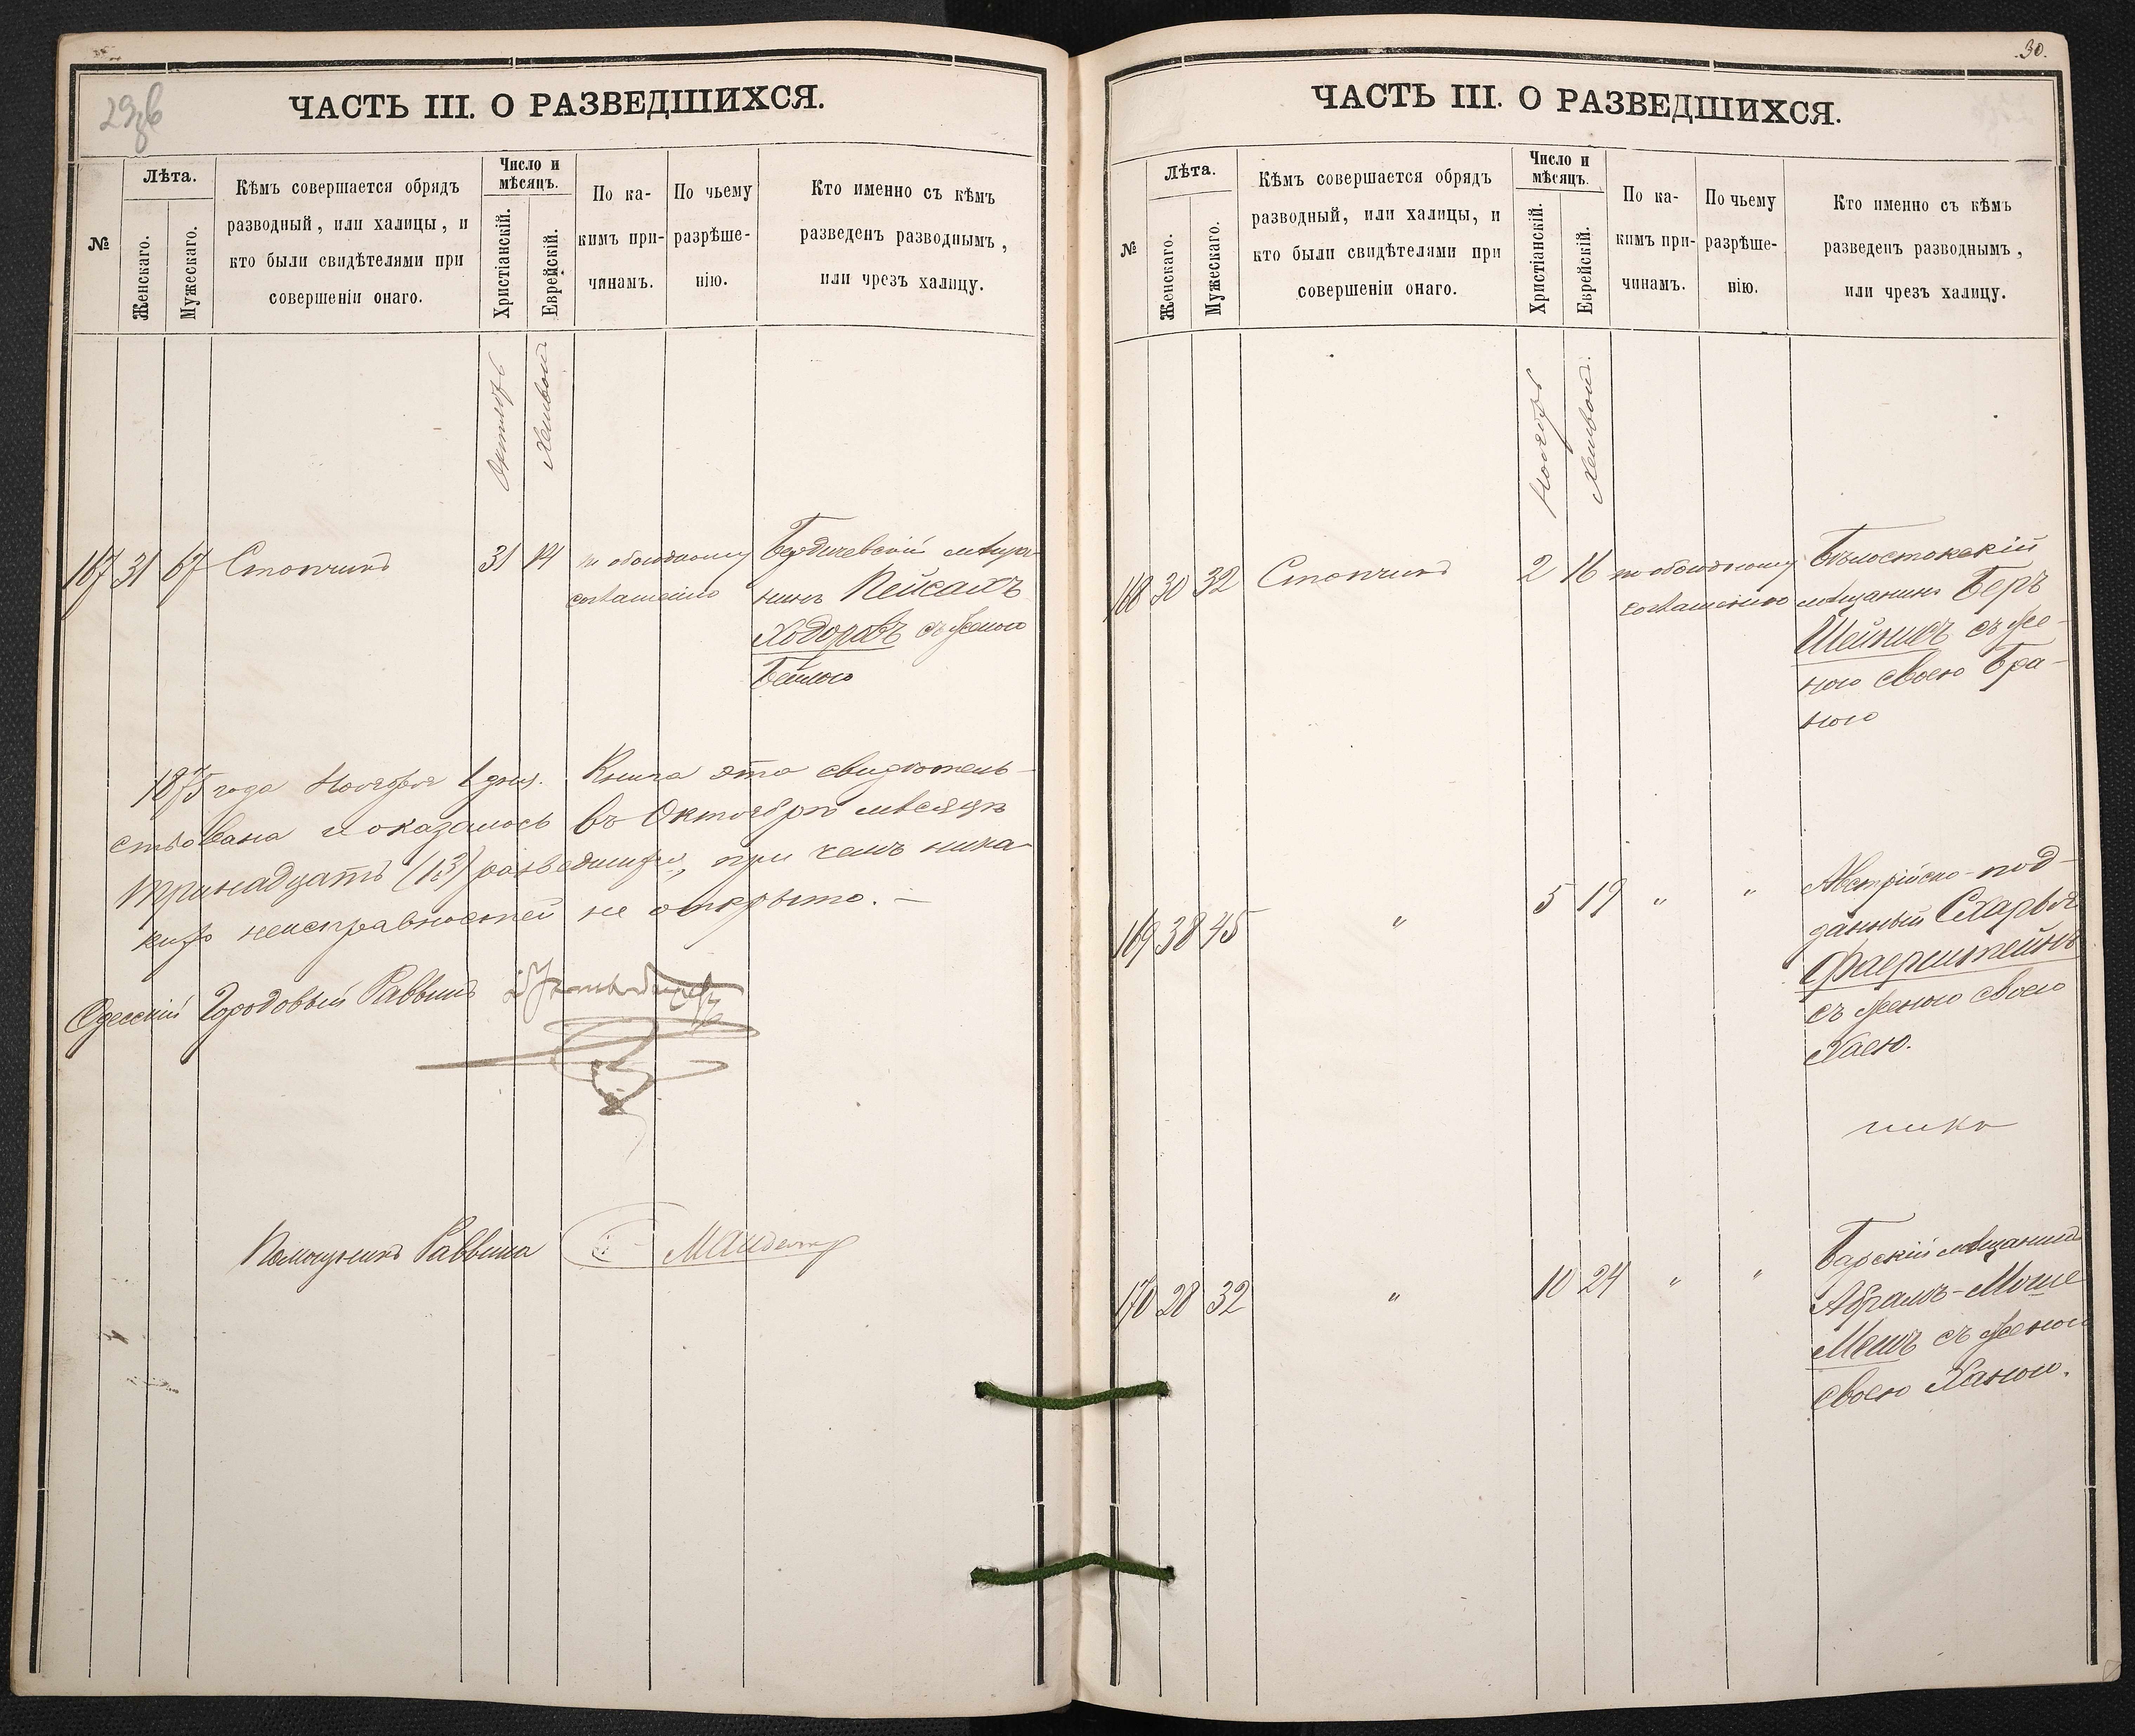 29зв
ЧАСТЬ III. О РАЗВЕДШИХСЯ.
№
Лѣта.
Женскаго.
Мужескаго.
Кѣмъ совершается обрядъ
разводный, или халицы, и
кто были свидѣтелями при
совершеніи онаго.
Число и
мѣсяцъ.
Христіанскій.
Еврейскій.
По ка-
кимъ при-
чинамъ.
По чьему
разрѣше-
нію.
Кто именно съ кѣмъ
разведенъ разводнымъ,
или чрезъ халицу.
Октябрь
Хешвой
167 31 67 Стопчикъ 31 14 по обоюдному Бердичевскій мѣща-
согlашенію нинъ Пейсахъ
Ходоровъ съ женою
Бейлою
1875 года Ноября 1 дня. Книга эта свидѣтель-
ствована и оказалось въ Октябрѣ мѣсяцѣ
тринадцать (13) разведшихся, при чемъ ника-
кихъ неисправностей не открыто. —
Одесскій Городовый Раввинъ
Помощникъ Раввина
30.
ЧАСТЬ III. О РАЗВЕДШИХСЯ.
№
Лѣта.
Женскаго.
Мужескаго.
Кѣмъ совершается обрядъ
разводный, или халицы, и
кто были свидѣтелями при
совершеніи онаго.
Число и
мѣсяцъ.
Христіанскій.
Еврейскій.
По ка-
кимъ при-
чинамъ.
По чьему
разрѣше-
нію.
Кто именно съ кѣмъ
разведенъ разводнымъ,
или чрезъ халицу.
Ноябрь
Хешвой.
168 30 32 Стопчикъ 2 16 по обоюдному Бѣлостокскій
соглашенію мѣщанинъ Беръ
Шейнисъ съ же-
ною своею Бра-
ною
169 38 45 " 5 19 " " Австрійско-под-
данный Схарья
Фаерштейнъ
съ женою своею
Хаею.
170 28 32 " 10 24 " " Барскій мѣщанинъ
Абрамъ-Моше
Мешъ съ женою
своею Ханою.